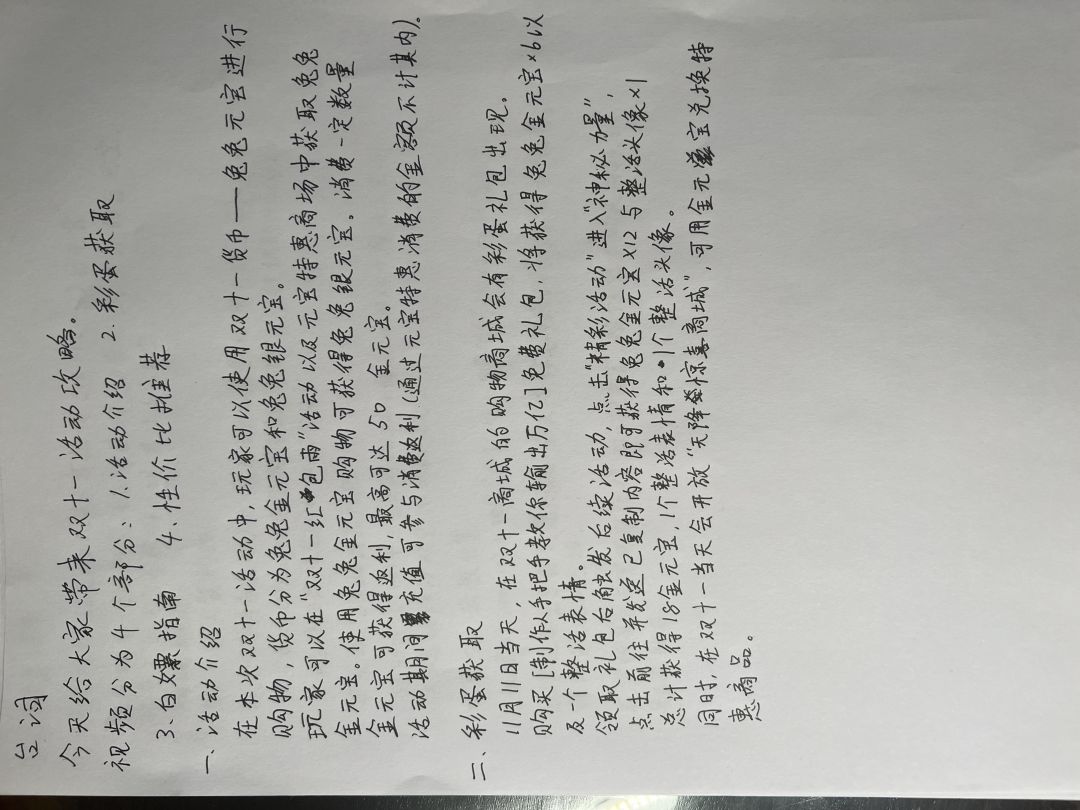 台词
今天给大家带来双十一活动攻略。
视频分为4个部分：1.活动介绍 2.彩蛋获取
3.白嫖指南 4.性价比推荐
一、活动介绍
在本次双十一活动中，玩家可以使用双十一货币——兔兔元宝进行
购物，货币分为兔兔金元宝和兔兔银元宝。
玩家可以在“双十一红包雨”活动以及元宝特惠商场中获取兔兔
金元宝。使用兔兔金元宝购物可获得兔兔银元宝。消费一定数量
金元宝可获得返利，最高可达50 金元宝。
活动期间充值可参与消费返利(通过元宝特惠消费的金额不计其内)。
二、彩蛋获取
11月11日当天，在双十一商城的购物商城会有彩蛋礼包出现。
购买[制作人手把手教你输出万亿]免费礼包，将获得兔兔金元宝×6以
及一个整活表情。
领取礼包后触发后续活动，点击“精彩活动”进入“神秘力量”，
点击前往并发送已复制内容即可获得兔兔金元宝×12与整活头像×1
总计获得18金元宝，1个整活表情和1个整活头像。
同时，在双十一当天会开放“天降惊喜商城”，可用金元宝兑换特
惠商品。